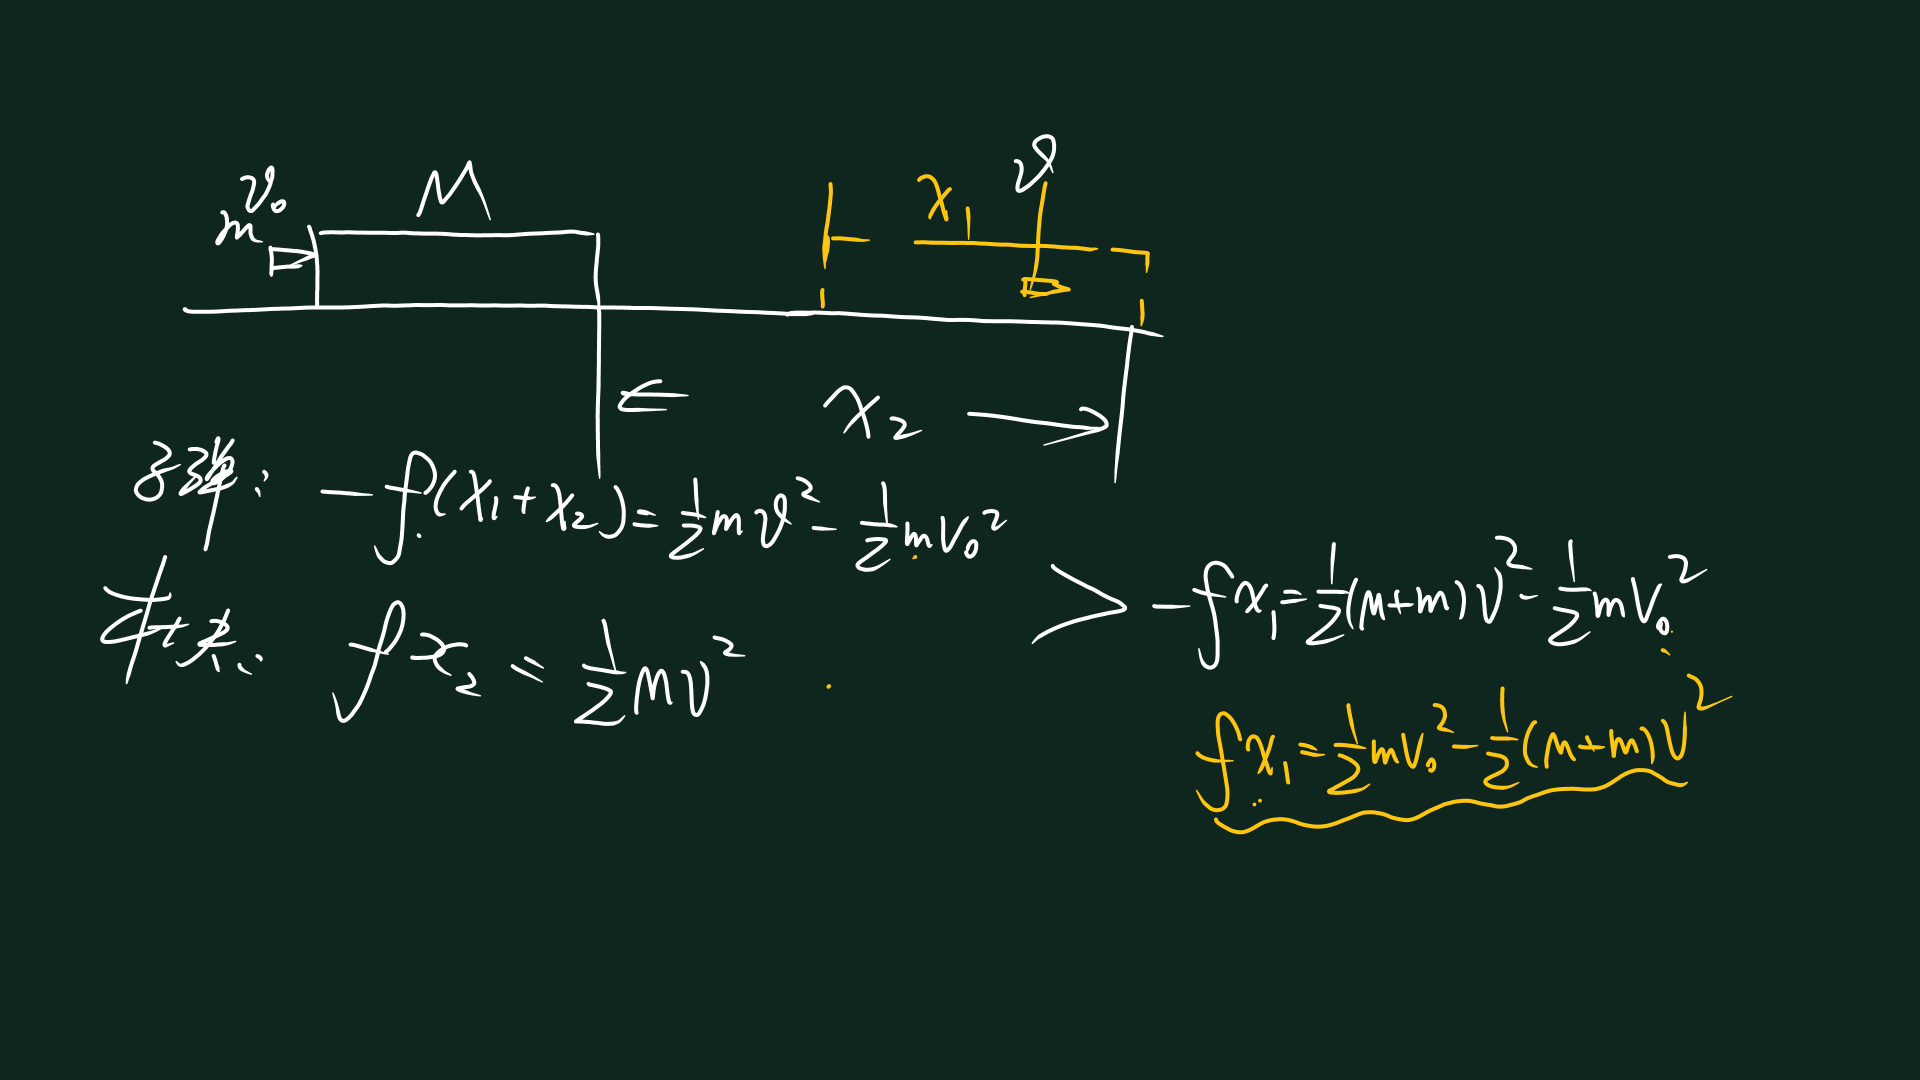 v₀ M
m
x₁ v
x₂
子弹: -f(x₁+x₂)=½mv²-½mv₀²
木块: fx₂=½Mv²
> -fx₁=½(M+m)v²-½mv₀²
fx₁=½mv₀²-½(M+m)v²